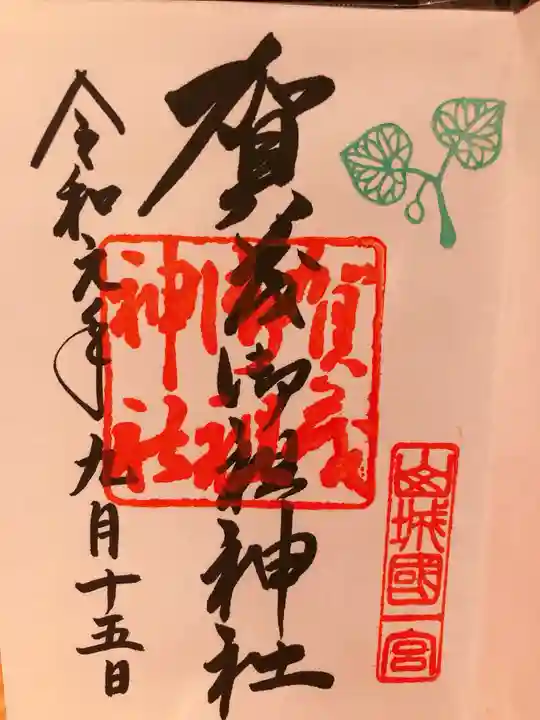 山城國一宮
賀茂御祖神社
賀茂御祖神社
令和元年九月十五日